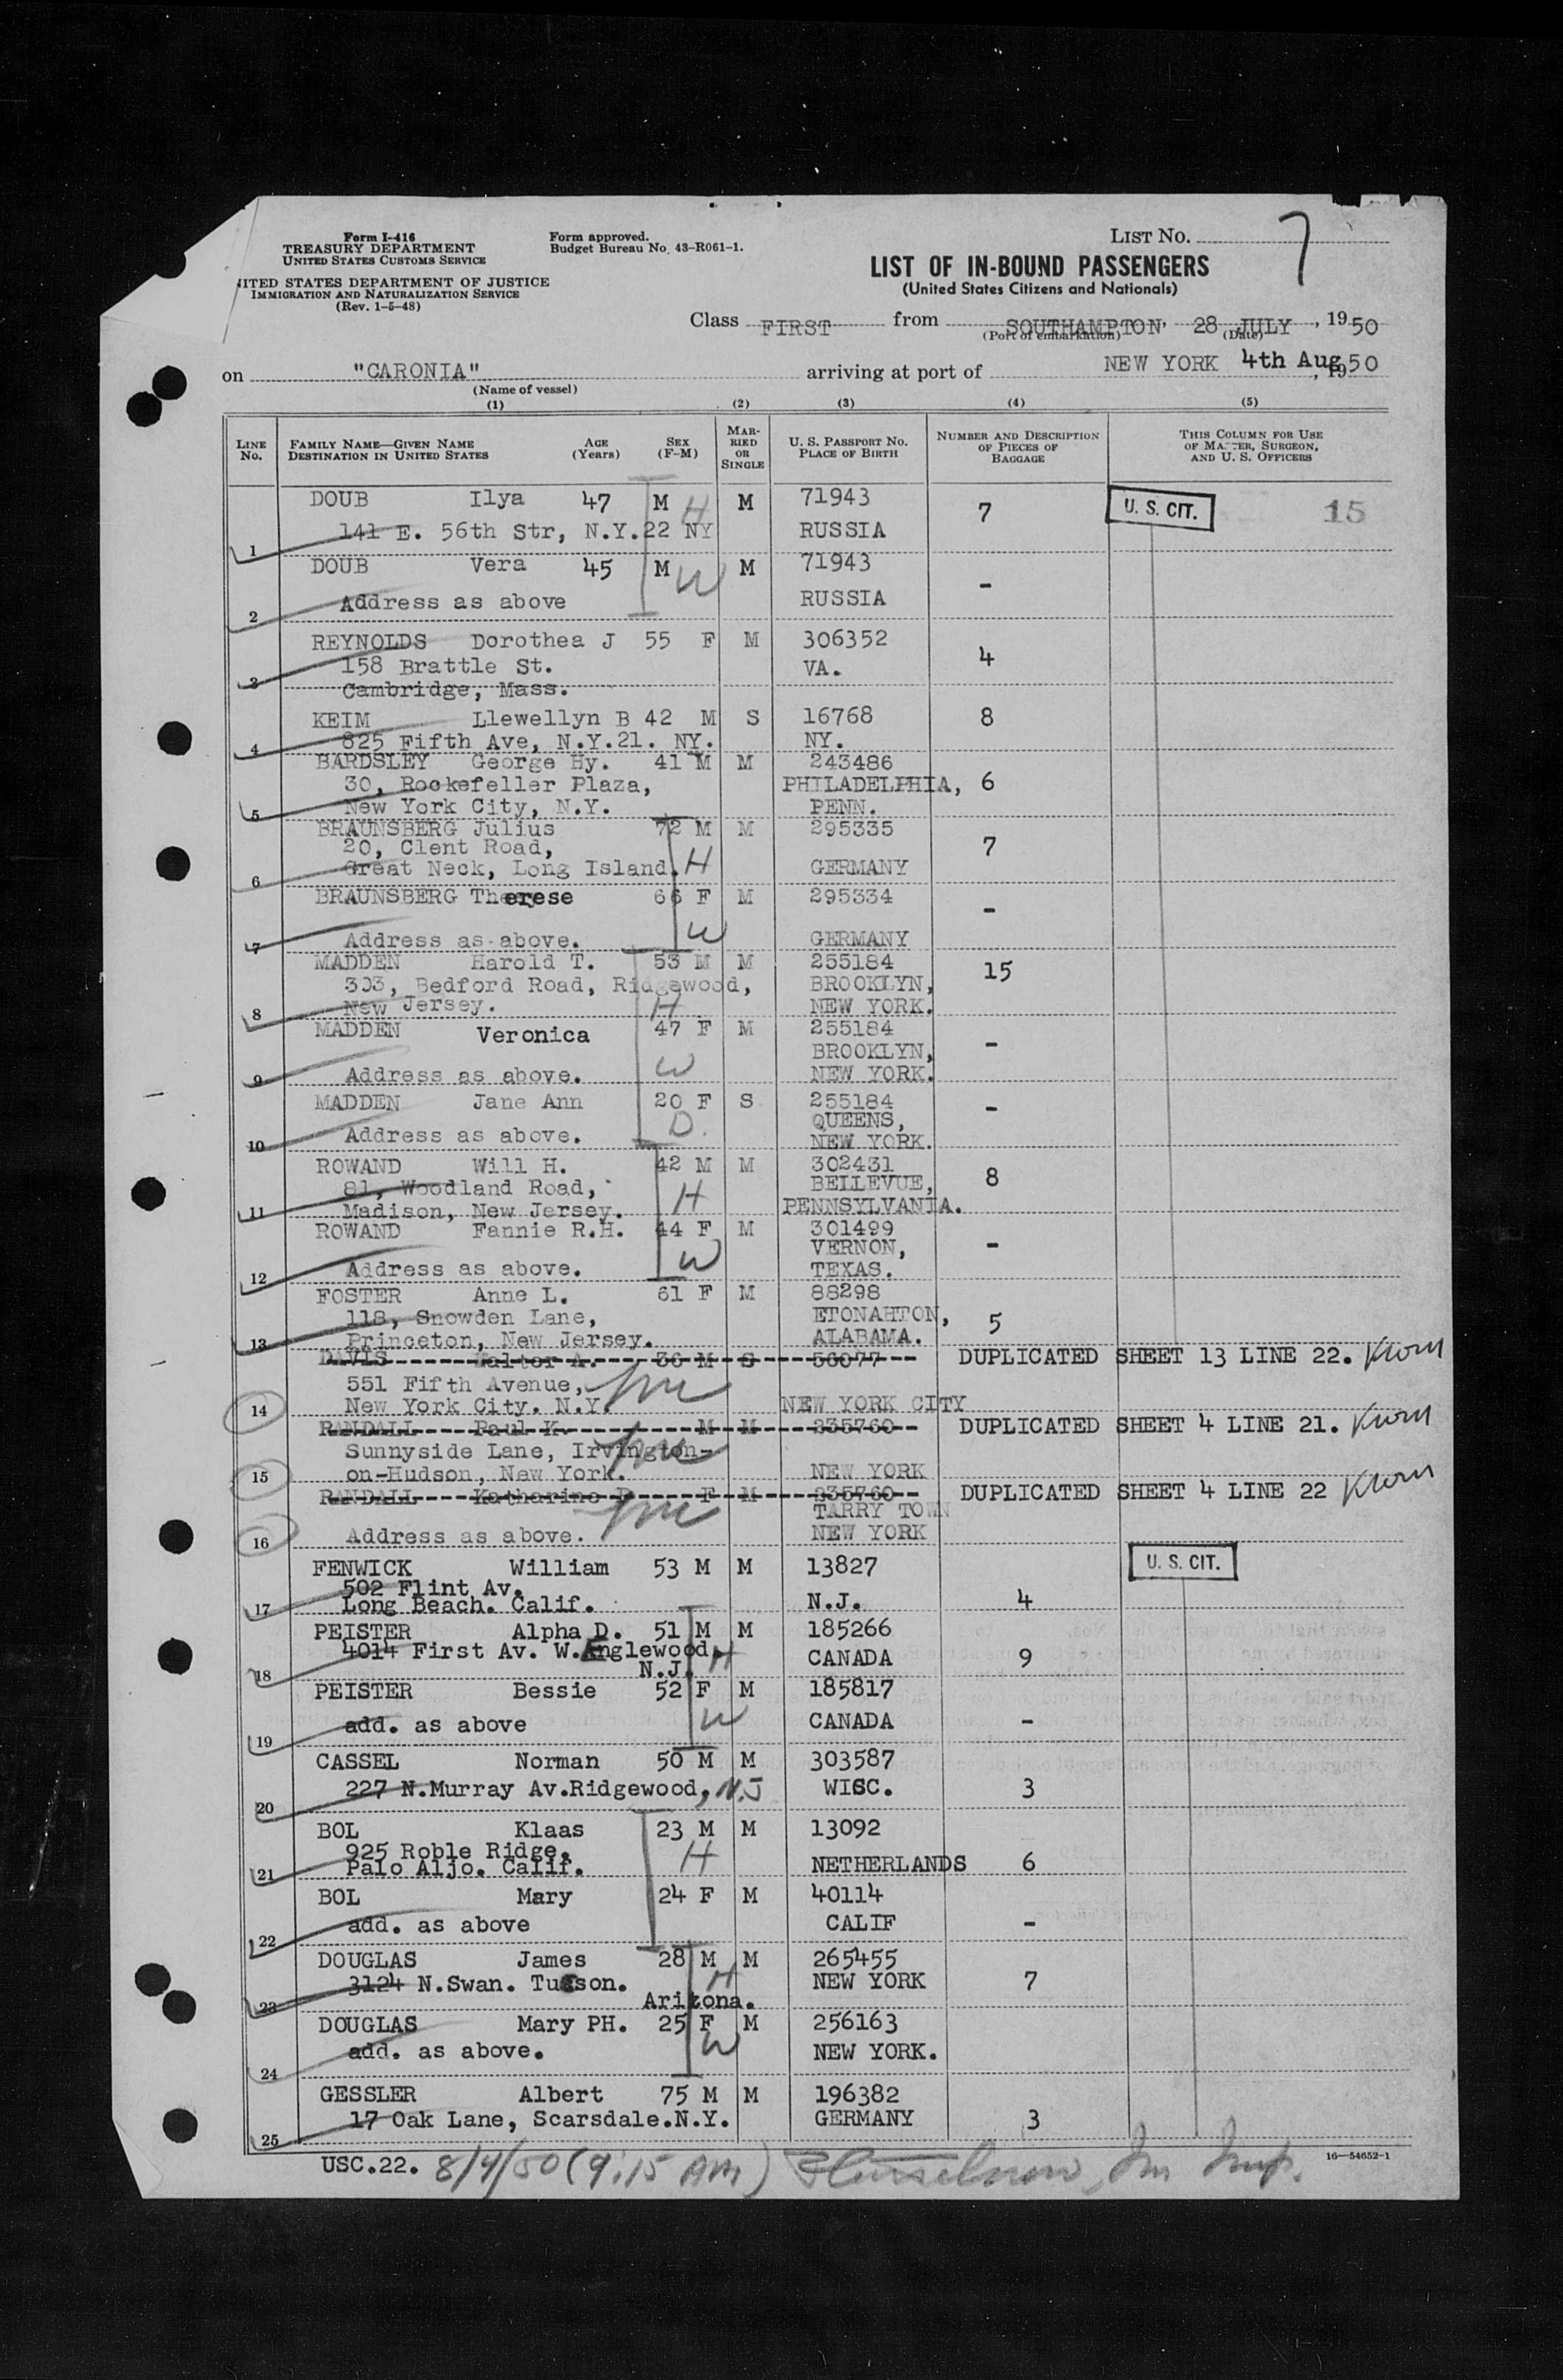 Form I-416
TREASURY DEPARTMENT
UNITED STATES CUSTOMS SERVICE
ITED STATES DEPARTMENT OF JUSTICE
IMMIGRATION AND NATURALIZATION SERVICE
(Rev. 1-5-48)
Form approved.
Budget Bureau No. 43-R061-1.
LIST NO. 7
LIST OF IN-BOUND PASSENGERS
(United States Citizens and Nationals)
Class FIRST from SOUTHAMPTON, 28 JULY, 1950
(Port of embarkation) (Date)
on "CARONIA" arriving at port of NEW YORK 4th Aug, 1950
(Name of vessel)
(1) (2) (3) (4) (5)
LINE NO. FAMILY NAME—GIVEN NAME DESTINATION IN UNITED STATES AGE (Years) SEX (F-M) MARRIED OR SINGLE U. S. PASSPORT NO. PLACE OF BIRTH NUMBER AND DESCRIPTION OF PIECES OF BAGGAGE THIS COLUMN FOR USE OF MASTER, SURGEON, AND U. S. OFFICERS
DOUB Ilya 47 M H M 71943 7 U. S. CIT. 15
1 141 E. 56th Str, N.Y.22 NY RUSSIA
DOUB Vera 45 M W M 71943 -
2 Address as above RUSSIA
REYNOLDS Dorothea J 55 F M 306352 4
158 Brattle St. VA.
3 Cambridge, Mass.
KEIM Llewellyn B 42 M S 16768 8
4 825 Fifth Ave, N.Y.21. NY. NY.
BARDSLEY George Hy. 41 M M 243486
30, Rockefeller Plaza, PHILADELPHIA, 6
5 New York City, N.Y. PENN.
BRAUNSBERG Julius 72 M M 295335
20, Clent Road, 7
6 Great Neck, Long Island. H GERMANY
BRAUNSBERG Therese 66 F M 295334 -
7 Address as above. W GERMANY
MADDEN Harold T. 53 M M 255184 15
303, Bedford Road, Ridgewood, BROOKLYN,
8 New Jersey. H NEW YORK.
MADDEN Veronica 47 F M 255184
BROOKLYN, -
9 Address as above. W NEW YORK.
MADDEN Jane Ann 20 F S 255184 -
QUEENS,
10 Address as above. D. NEW YORK.
ROWAND Will H. 42 M M 302431
81, Woodland Road, H BELLEVUE, 8
11 Madison, New Jersey. PENNSYLVANIA.
ROWAND Fannie R.H. 44 F M 301499
VERNON, -
12 Address as above. W TEXAS.
FOSTER Anne L. 61 F M 88298
118, Snowden Lane, ETONAHTON, 5
13 Princeton, New Jersey. ALABAMA.
DAVIS Walter A. 36 M S 56077 DUPLICATED SHEET 13 LINE 22.
551 Fifth Avenue,
14 New York City. N.Y. NEW YORK CITY
RANDALL Paul K. M M 235760 DUPLICATED SHEET 4 LINE 21.
Sunnyside Lane, Irvington-
15 on-Hudson, New York. NEW YORK
RANDALL Katharine F M 235760 DUPLICATED SHEET 4 LINE 22
TARRY TOWN
16 Address as above. NEW YORK
FENWICK William 53 M M 13827 U. S. CIT.
502 Flint Av.
17 Long Beach. Calif. N.J. 4
PEISTER Alpha D. 51 M M 185266
4014 First Av. W.Englewood. H CANADA 9
18 N.J.
PEISTER Bessie 52 F M 185817
19 add. as above W CANADA -
CASSEL Norman 50 M M 303587
20 227 N.Murray Av.Ridgewood, N.J WISC. 3
BOL Klaas 23 M M 13092
925 Roble Ridge, H
21 Palo Aljo. Calif. NETHERLANDS 6
BOL Mary 24 F M 40114
22 add. as above CALIF -
DOUGLAS James 28 M M 265455
3124 N.Swan. Tucson. H NEW YORK 7
23 Arizona.
DOUGLAS Mary PH. 25 F M 256163
24 add. as above. W NEW YORK.
GESSLER Albert 75 M M 196382
25 17 Oak Lane, Scarsdale.N.Y. GERMANY 3
USC.22. 8/4/50 (9:15 AM)
16—54652-1